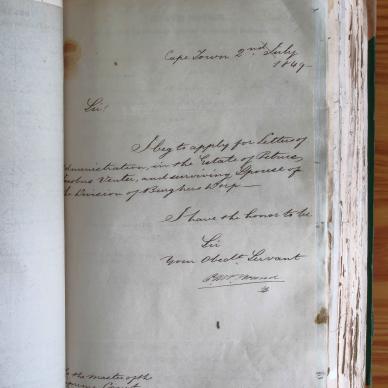 Cape Town 2nd July
1849
Sir!
I beg to apply for Letters of
dministration, in the Estate of Petrus
cobus Venter, and surviving Spouse of
he Division of Burghers Dorp—
I have the honor to be
Sir
Your Obedt. Servant
o the Master of the
preme Court